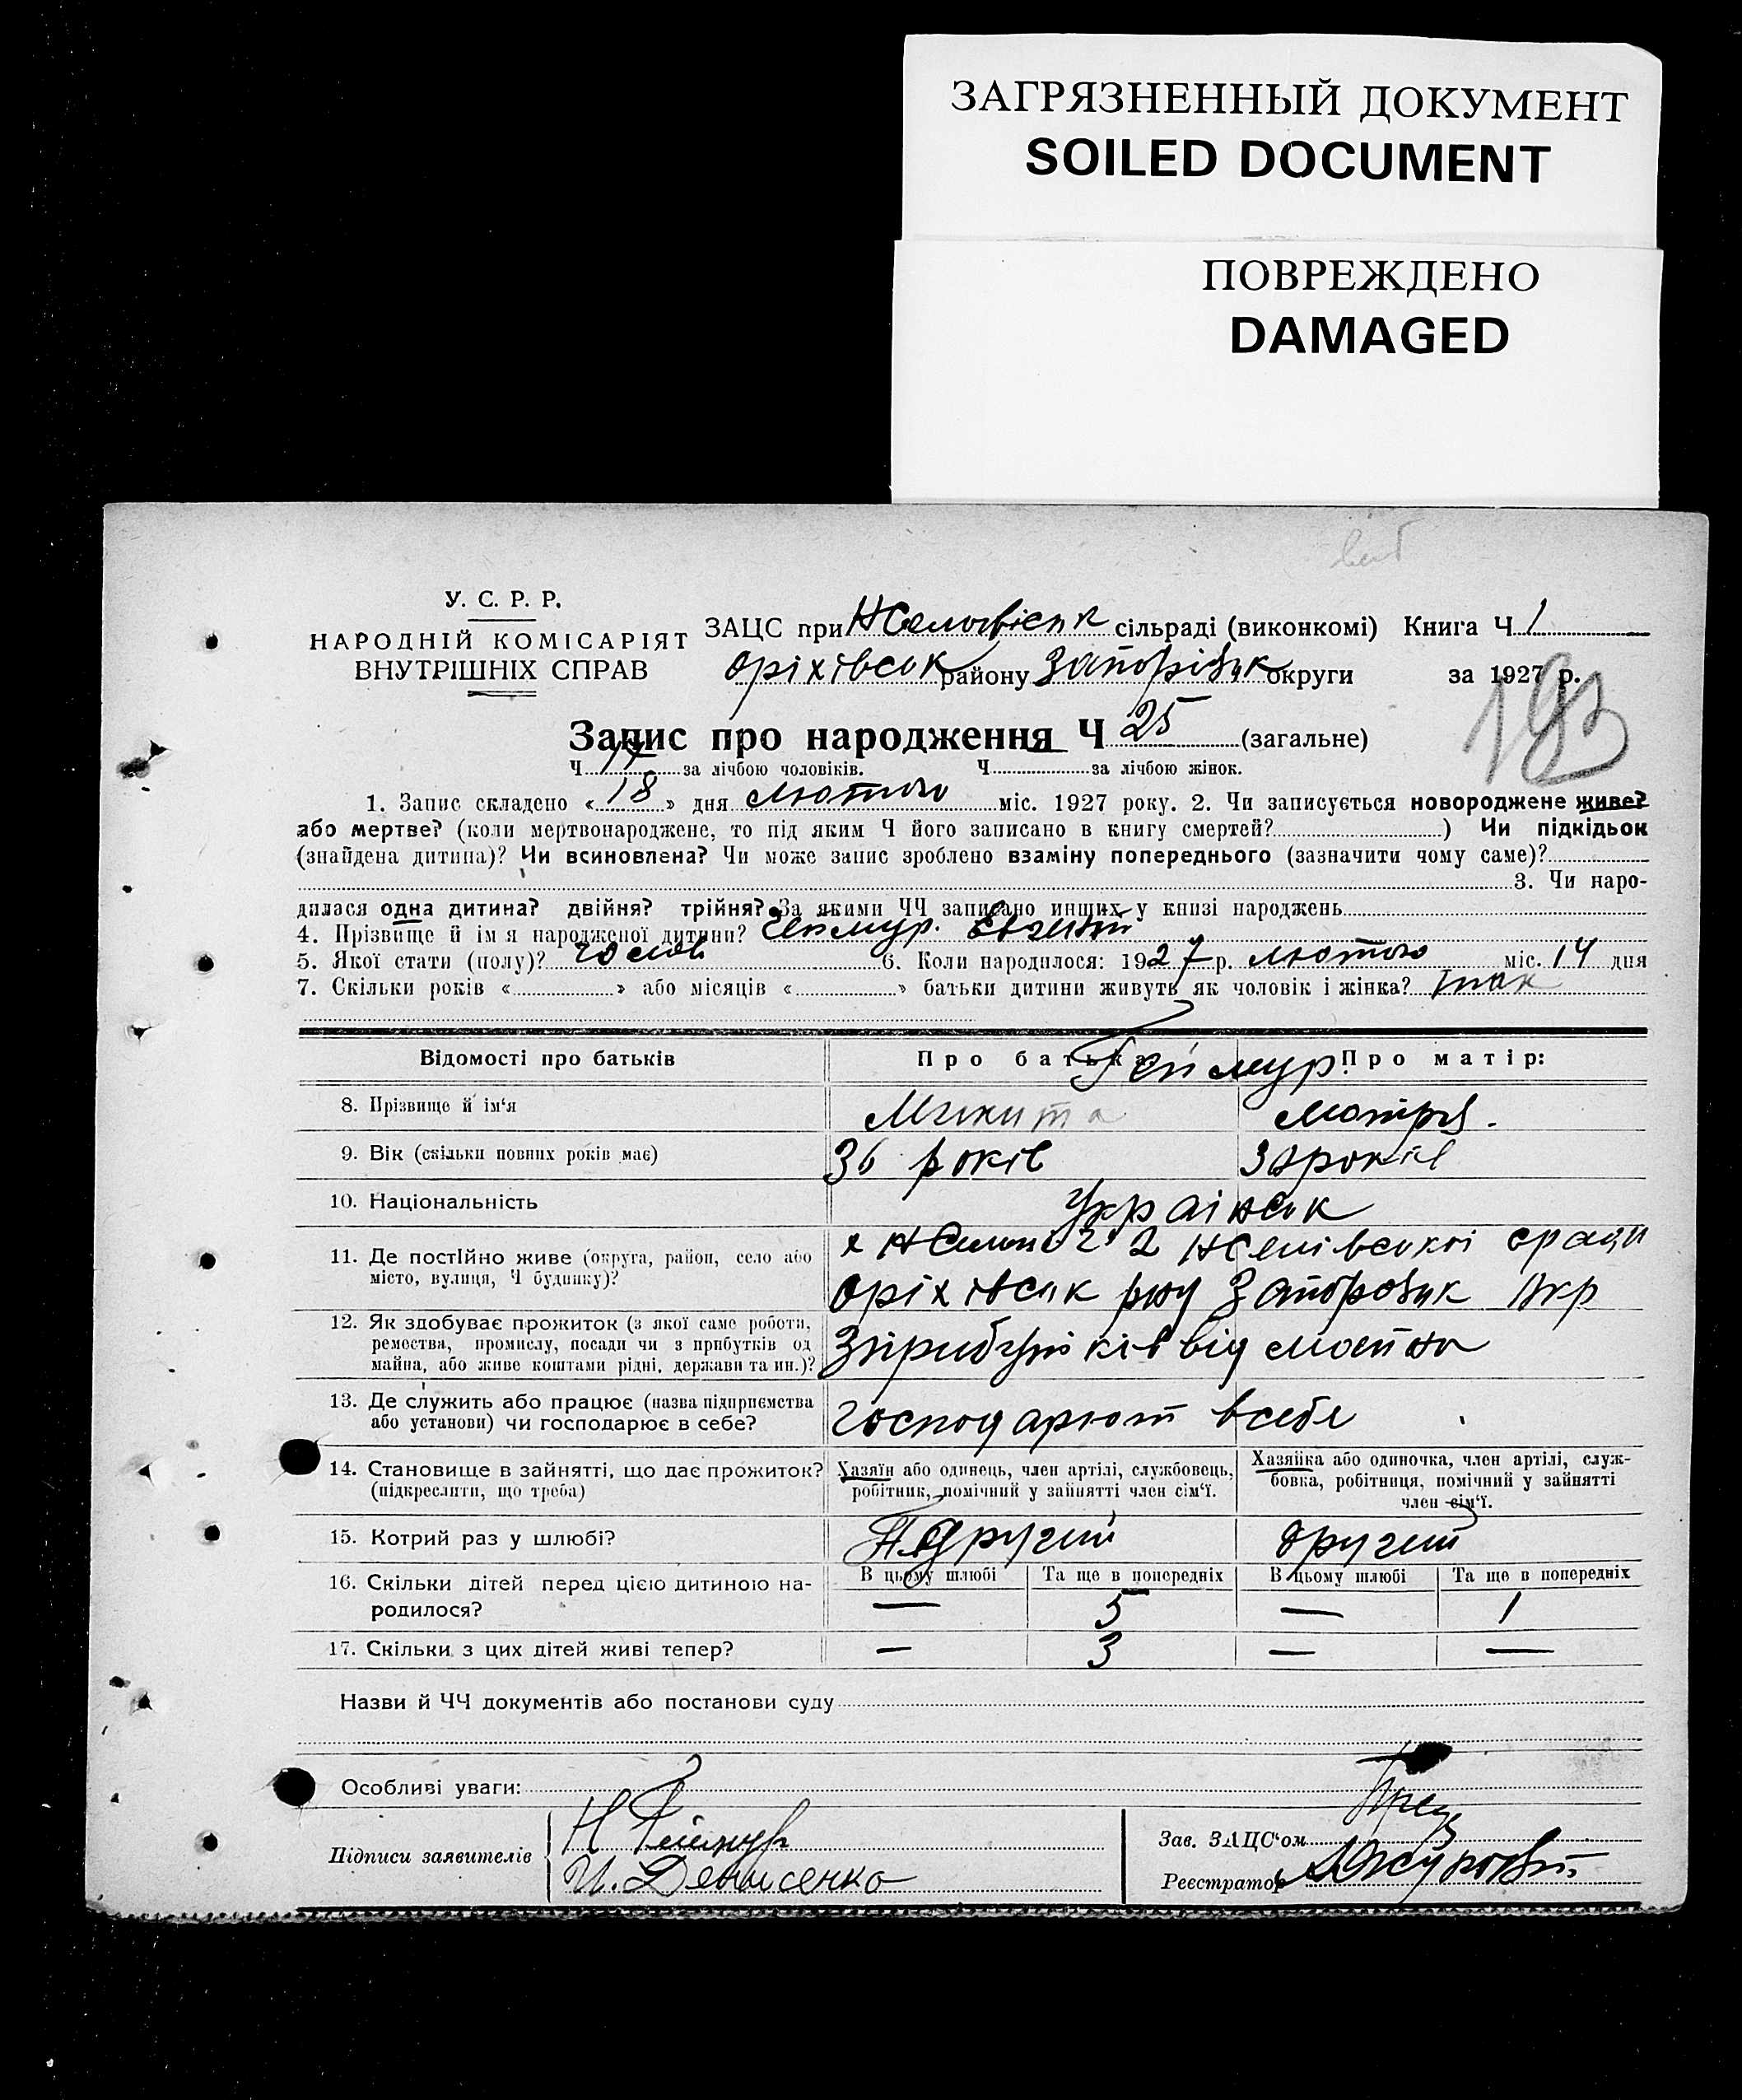 ЗАГРЯЗНЕННЫЙ ДОКУМЕНТ
SOILED DOCUMENT
ПОВРЕЖДЕНО
DAMAGED
У. С. Р. Р.
НАРОДНІЙ КОМІСАРІЯТ
ВНУТРІШНІХ СПРАВ
ЗАЦС при сільраді (виконкомі) Книга Ч 1
Оріхівськ району Запорізьк округи за 1927 р.
193
Запис про народження Ч 25 (загальне)
Ч 17 за лічбою чоловіків. Ч за лічбою жінок.
1. Запис складено « 18 » дня лютого міс. 1927 року. 2. Чи записується новороджене живе?
або мертве? (коли мертвонароджене, то під яким Ч його записано в книгу смертей? ) Чи підкідьок
(знайдена дитина)? Чи всиновлена? Чи може запис зроблено взаміну попереднього (зазначити чому саме)?
3. Чи наро-
дилася одна дитина? двійня? трійня? За якими ЧЧ записано инших у книзі народжень
4. Прізвище й ім я народженої дитини? Геймур. Евгений
5. Якої стати (полу)? чолов 6. Коли народилося: 1927 р. лютого міс. 14 дня
7. Скільки років « » або місяців « » батьки дитини живуть як чоловік і жінка? так
Відомості про батьків Про батька Про матір:
Геймур.
8. Прізвище й ім'я Микита Мотря.
9. Вік (скільки повних років має) 36 років років
10. Національність Українськ
11. Де постійно живе (округа, район, село або
місто, вулиця, Ч будинку)?
х 2 сради
Оріхівськ рну Запорозьк Окр
12. Як здобуває прожиток (з якої саме роботи,
ремества, промислу, посади чи з прибутків од
майна, або живе коштами рідні, держави та ин.)?
Зприбутків від майна
13. Де служить або працює (назва підприємства
або установи) чи господарює в себе?
господарюют всебе
14. Становище в зайнятті, що дає прожиток?
(підкреслити, що треба)
Хазяїн або одинець, член артілі, службовець,
робітник, помічний у зайнятті член сім'ї.
Хазяйка або одиночка, член артілі, служ-
бовка, робітниця, помічний у зайнятті
член сім'ї.
15. Котрий раз у шлюбі? другий другий
16. Скільки дітей перед цією дитиною на-
родилося?
В цьому шлюбі Та ще в попередніх В цьому шлюбі Та ще в попередніх
— 5 — 1
17. Скільки з цих дітей живі тепер? — 3 — —
Назви й ЧЧ документів або постанови суду
Особливі уваги:
Підписи заявителів
Н Геймур
И. Денисенко
Зав. ЗАЦС'ом
Реєстратор